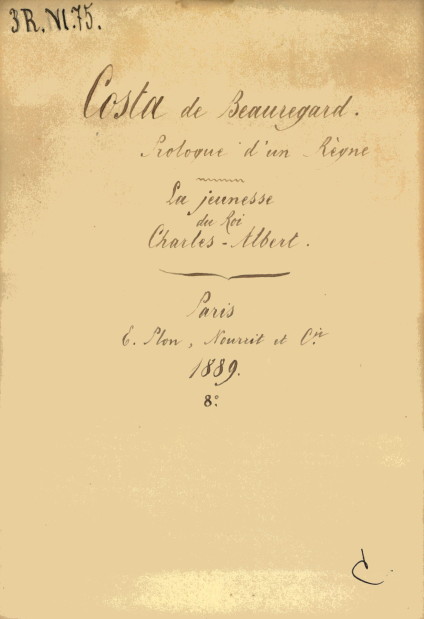 3R.VI.75.
Costa de Beauregard.
Prologue d'un Règne
La jeunesse
du Roi
Charles-Albert.
Paris
E. Plon, Nourrit et Cie
1889.
8º